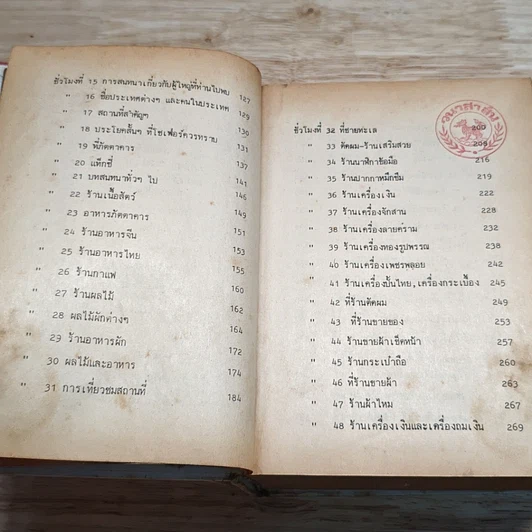 ชั่วโมงที่ 15 การสนทนาเกี่ยวกับผู้ใหญ่ที่ท่านไปพบ 127
" 16 ชื่อประเทศต่างๆ และคนในประเทศ 129
" 17 สถานที่สำคัญๆ 130
" 18 ประโยคสั้นๆ ที่โชเฟอร์ควรทราบ 131
" 19 ที่ภัตตาคาร 133
" 20 แท็กซี่ 140
" 21 บทสนทนาทั่วๆ ไป 141
" 22 ร้านเนื้อสัตว์ 146
" 23 อาหารภัตตาคาร 149
" 24 ร้านอาหารจีน 151
" 25 ร้านอาหารไทย 153
" 26 ร้านกาแฟ 155
" 27 ร้านผลไม้ 160
" 28 ผลไม้ผักต่างๆ 162
" 29 ร้านอาหารผัก 164
" 30 ผลไม้และอาหาร 172
" 31 การเที่ยวชมสถานที่ 174
184
ชั่วโมงที่ 32 ที่ชายทะเล 200
" 33 ดัดผม-ร้านเสริมสวย
" 34 ร้านนาฬิกาข้อมือ 216
" 35 ร้านปากกาหมึกซึม 219
" 36 ร้านเครื่องเงิน 222
" 37 ร้านเครื่องจักสาน 228
" 38 ร้านเครื่องลายคราม 232
" 39 ร้านเครื่องทองรูปพรรณ 238
" 40 ร้านเครื่องเพชรพลอย 242
" 41 ร้านเครื่องปั้นไทย, เครื่องกระเบื้อง 245
" 42 ที่ร้านตัดผม 249
" 43 ที่ร้านขายของ 253
" 44 ร้านขายผ้าเช็ดหน้า 257
" 45 ร้านกระเป๋าถือ 260
" 46 ที่ร้านขายผ้า 263
" 47 ร้านผ้าไหม 267
" 48 ร้านเครื่องเงินและเครื่องถมเงิน 269